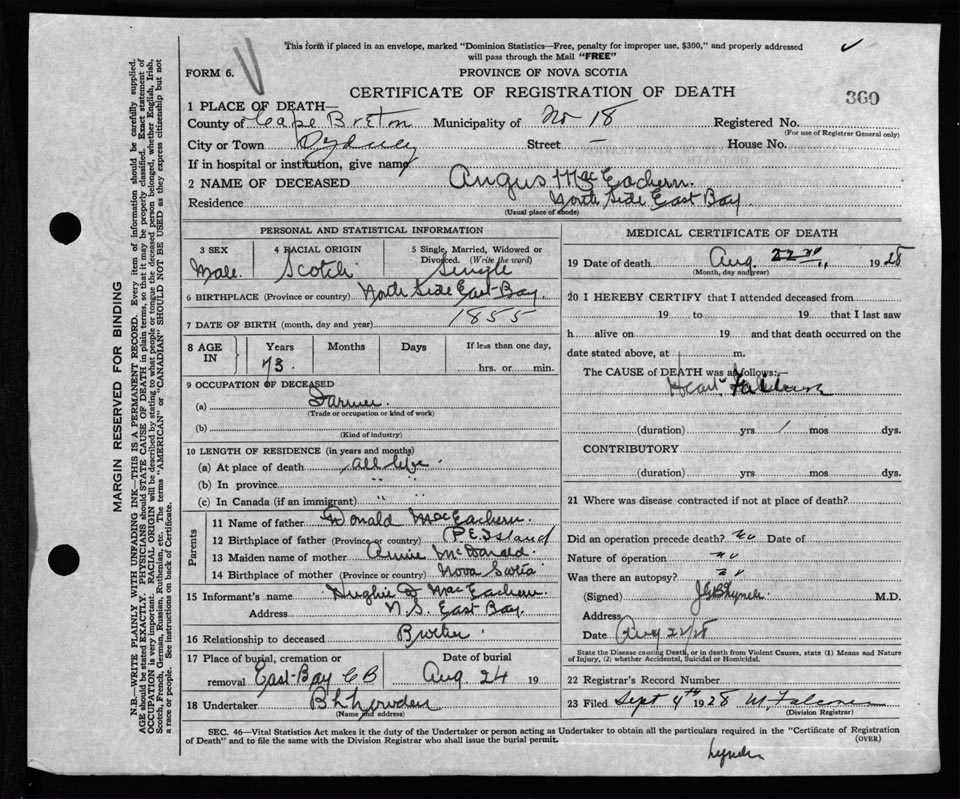 This form if placed in an envelope, marked "Dominion Statistics—Free, penalty for improper use, $300," and properly addressed
will pass through the Mail "FREE"
FORM 6.
PROVINCE OF NOVA SCOTIA
CERTIFICATE OF REGISTRATION OF DEATH
360
1 PLACE OF DEATH—
County of Cape Breton Municipality of No 18 Registered No.
(For use of Registrar General only)
City or Town Sydney Street — House No.
If in hospital or institution, give name
2 NAME OF DECEASED Angus MacEachern.
Residence North Side East Bay.
(Usual place of abode)
PERSONAL AND STATISTICAL INFORMATION
3 SEX 4 RACIAL ORIGIN 5 Single, Married, Widowed or
Divorced. (Write the word)
Male. Scotch Single
6 BIRTHPLACE (Province or country) North Side East-Bay.
7 DATE OF BIRTH (month, day and year) 1855
8 AGE IN Years Months Days If less than one day,
73. hrs. or min.
9 OCCUPATION OF DECEASED
(a) Farmer.
(Trade or occupation or kind of work)
(b)
(Kind of industry)
10 LENGTH OF RESIDENCE (in years and months)
(a) At place of death all life
(b) In province " "
(c) In Canada (if an immigrant) " "
Parents
11 Name of father Donald MacEachern.
12 Birthplace of father (Province or country) P.E. Island
13 Maiden name of mother Annie McDonald.
14 Birthplace of mother (Province or country) Nova Scotia
15 Informant's name Hughie J MacEachern
Address N.S. East Bay.
16 Relationship to deceased Brother.
17 Place of burial, cremation or Date of burial
removal East-Bay CB Aug 24 19
18 Undertaker
(Name and address)
MEDICAL CERTIFICATE OF DEATH
19 Date of death Aug. 22nd 1928
(Month, day and year)
20 I HEREBY CERTIFY that I attended deceased from
19 to 19 that I last saw
h alive on 19 and that death occurred on the
date stated above, at m.
The CAUSE of DEATH was as follows:—
Heart
(duration) yrs 1 mos dys.
CONTRIBUTORY
(duration) yrs mos dys.
21 Where was disease contracted if not at place of death?
Did an operation precede death? no Date of
Nature of operation no
Was there an autopsy? no
(Signed) Lynch M.D.
Address
Date Aug 22/28
State the Disease causing Death, or in death from Violent Causes, state (1) Means and Nature
of Injury, (2) whether Accidental, Suicidal or Homicidal.
22 Registrar's Record Number
23 Filed Sept 4th 1928
(Division Registrar)
SEC. 46—Vital Statistics Act makes it the duty of the Undertaker or person acting as Undertaker to obtain all the particulars required in the "Certificate of Registration
of Death" and to file the same with the Division Registrar who shall issue the burial permit.
(OVER)
Lynch
MARGIN RESERVED FOR BINDING
N.B.—WRITE PLAINLY WITH UNFADING INK—THIS IS A PERMANENT RECORD. Every item of information should be carefully supplied.
AGE should be stated EXACTLY. PHYSICIANS should STATE CAUSE OF DEATH in plain terms, so that it may be properly classified. Exact statement of
OCCUPATION is very important. RACIAL ORIGIN will be described by stating to what people or tongue the deceased person belonged, whether English, Irish,
Scotch, French, German, Russian, Ruthenian, etc. The terms "AMERICAN" or "CANADIAN" SHOULD NOT BE USED as they express citizenship but not
a race or people. See instructions on back of Certificate.